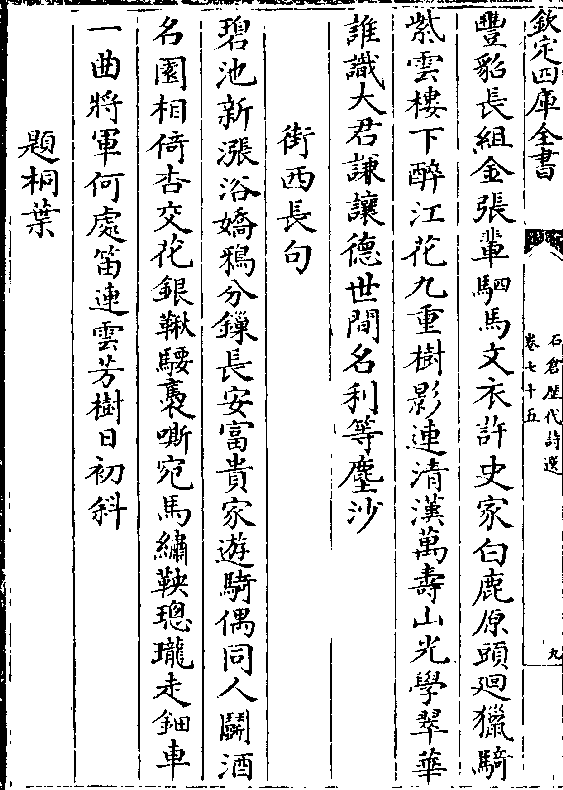 欽定四庫全書
石倉歴代詩選
卷七十五
九
豐貂長組金張輩駟馬文衣許史家白鹿原頭廻獵騎
紫雲樓下醉江花九重樹影連清漢萬壽山光學翠華
誰識大君謙讓德世間名利等塵沙
街西長句
碧池新漲浴嬌鴉分鏁長安富貴家遊騎偶同人鬭酒
名園相倚杏交花銀鞦騕褭嘶宛馬繡鞅璁瓏走鈿車
一曲將軍何處笛連雲芳樹日初斜
題桐葉